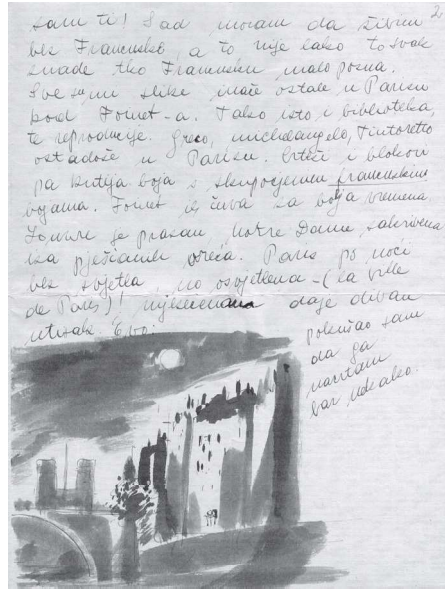 2
sam ti! Sad moram da živim
bez Francuske a to nije lako to svak
znade tko Francusku malo pozna.
Sve su mi slike inače ostale u Parisu
kod Fornet-a. Tako isto i biblioteka,
te reprodukcije. Greco, Michelangelo, Tintoretto
ostadoše u Parisu. Crteži i blokovi
pa kutija boja s skupocjenim francuskim
bojama. Fornet ih čuva za bolja vremena.
Louvre je prazan, Notre Dame sakrivena
iza pješčanih vreća. Paris po noći
bez svjetla, no osvjetljena - (la ville
de Paris)! mjesečinama daje divan
utisak. Evo:
pokušao sam
da ga
nacrtam
bar nekako.